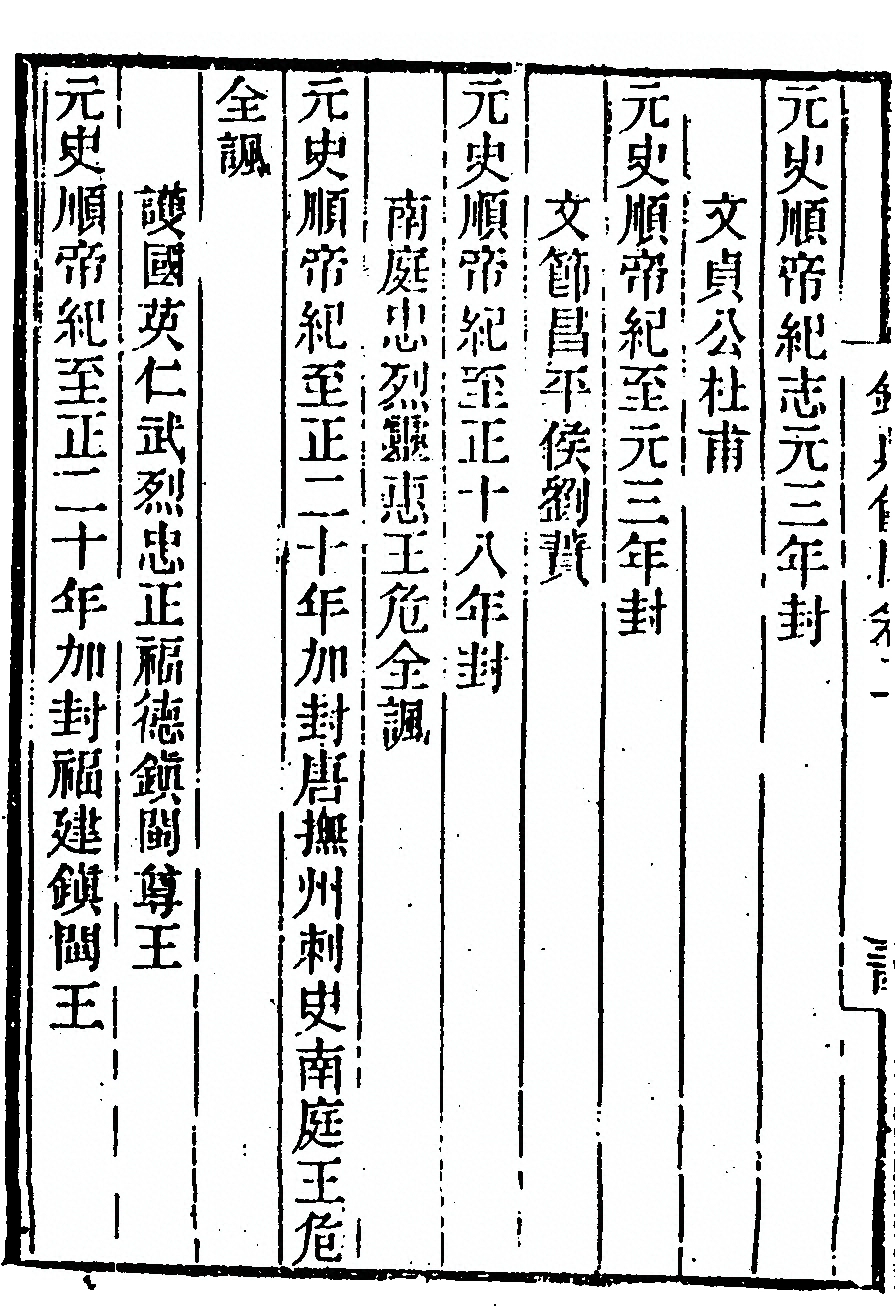 元史順帝紀志元三年封
文貞公杜甫
元史順帝紀至元三年封
文節昌平侯劉蕡
元史順帝紀至正十八年封
南庭忠烈靈惠王危全諷
元史順帝紀至正二十年加封唐撫州刺史南庭王危
全諷
護國英仁武烈忠正福德鎮閩尊王
元史順帝紀至正二十年加封福建鎮閩王